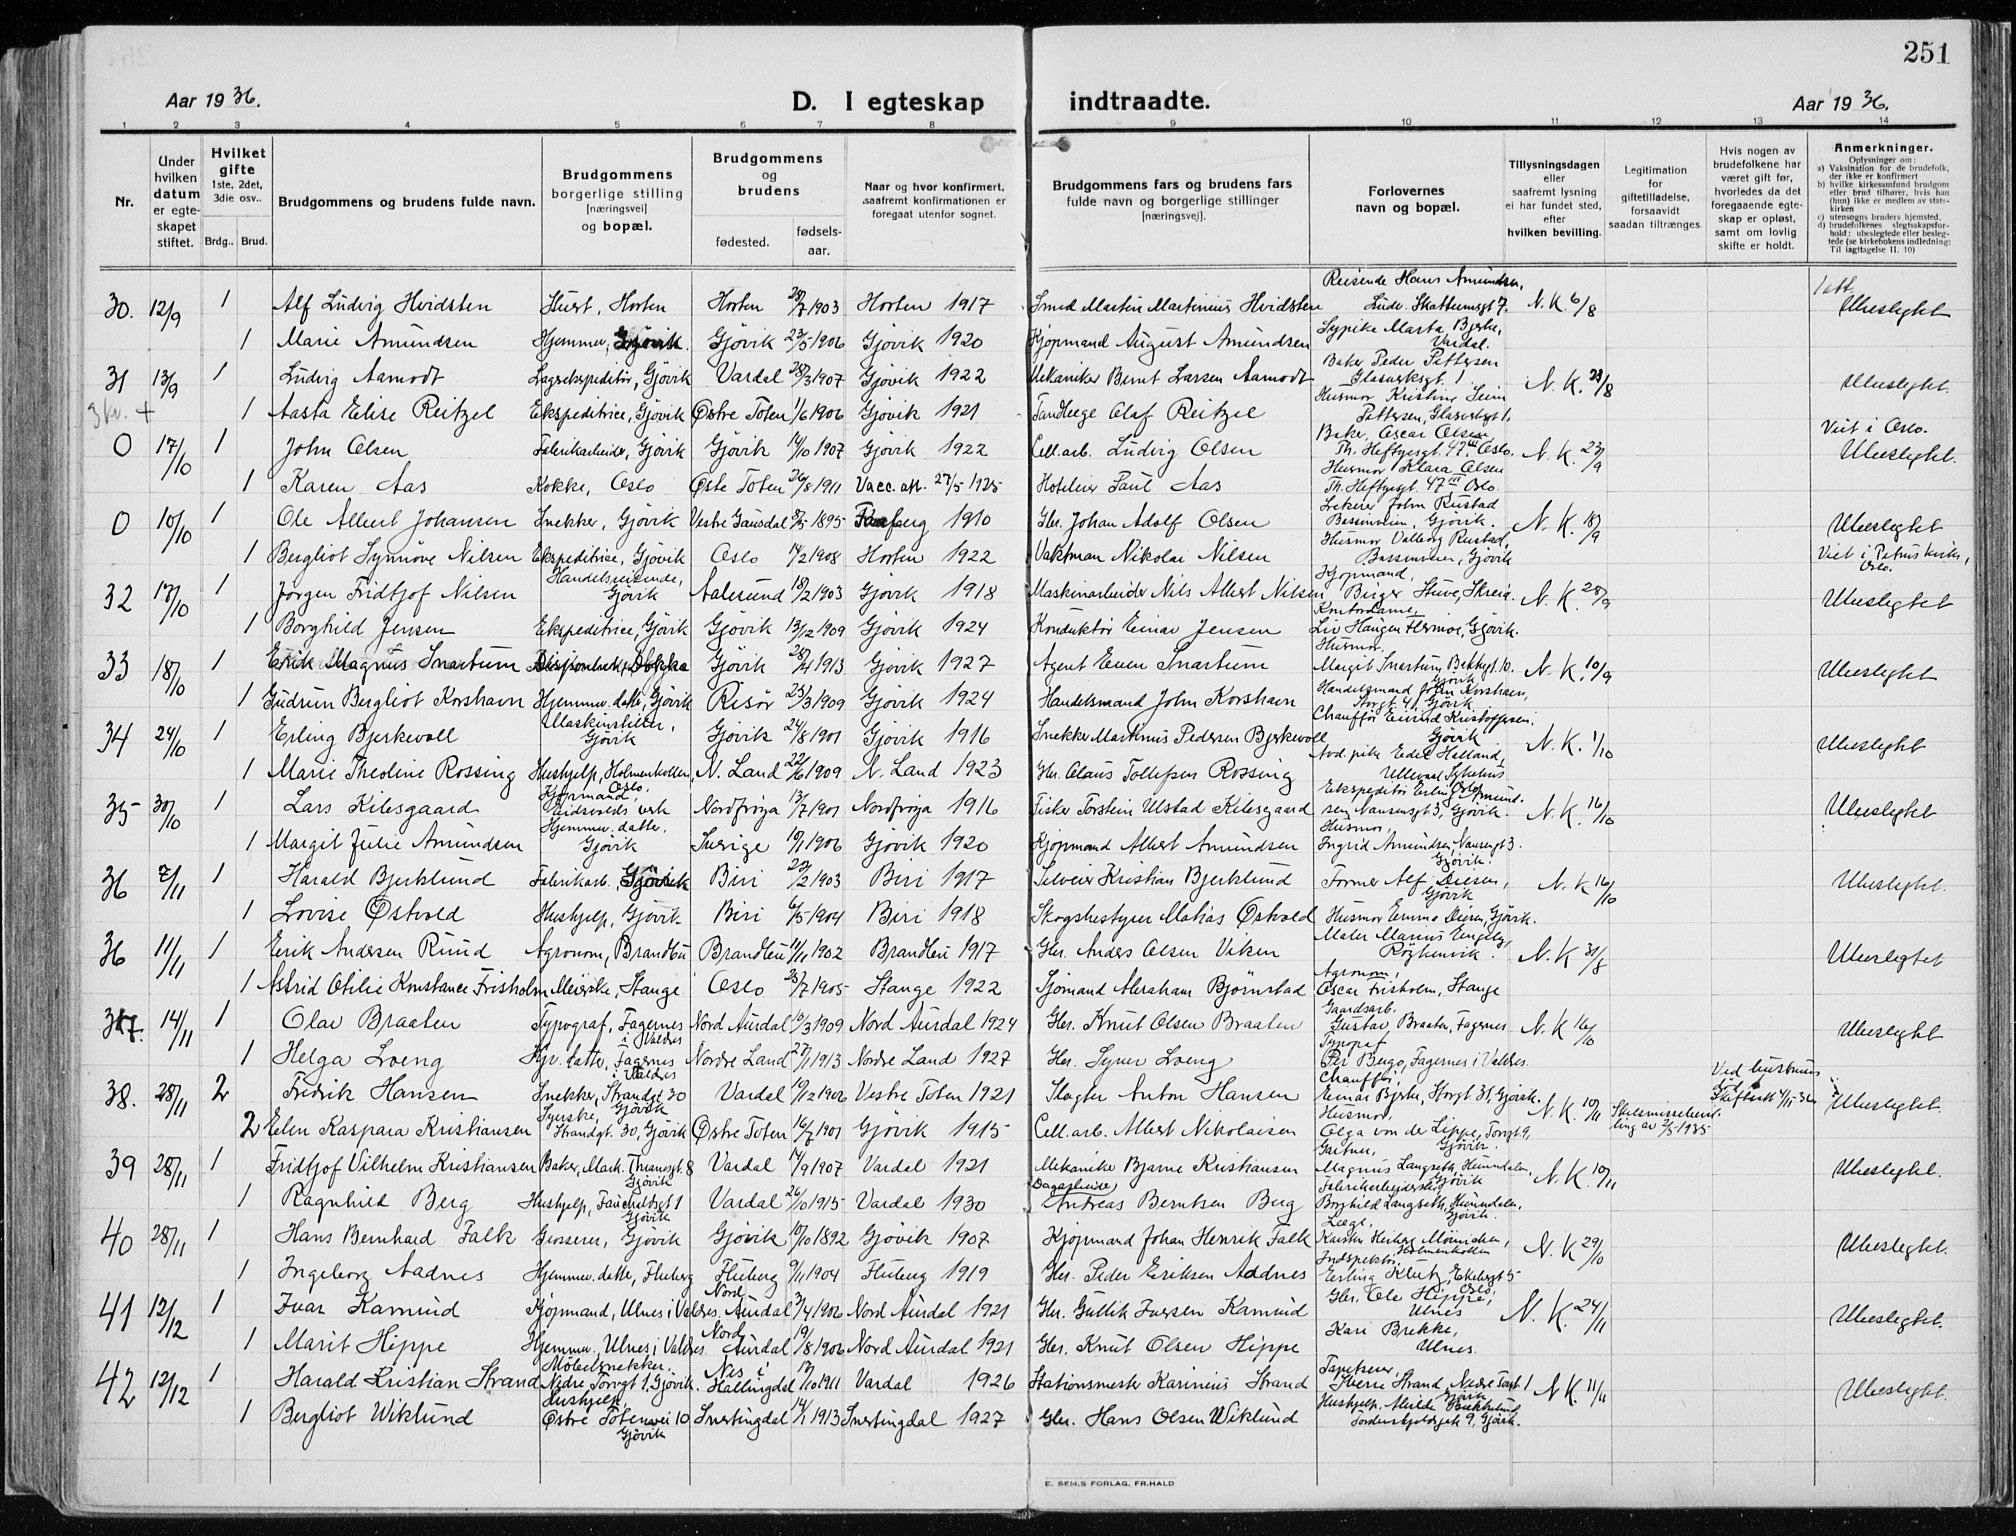 251
Aar 1936. D. I egteskap indtraadte. Aar 1936.
1 2 3 4 5 6 7 8 9 10 11 12 13 14
Nr.
Under hvilken datum er egteskapet stiftet.
Hvilket gifte 1ste, 2det, 3die osv..
Brdg.. Brud.
Brudgommens og brudens fulde navn.
Brudgommens borgerlige stilling [næringsvei] og bopæl.
Brudgommens og brudens
fødested. fødselsaar.
Naar og hvor konfirmert, saafremt konfirmationen er foregaat utenfor sognet.
Brudgommens fars og brudens fars fulde navn og borgerlige stillinger [næringsvej].
Forlovernes navn og bopæl.
Tillysningsdagen eller saafremt lysning ei har fundet sted, efter hvilken bevilling.
Legitimation for giftetilladelse, forsaavidt saadan tiltrænges.
Hvis nogen av brudefolkene har været gift før, hvorledes da det foregaaende egteskap er opløst, samt om lovlig skifte er holdt.
Anmerkninger.
Oplysninger om:
a) Vaksination for de brudefolk, der ikke er konfirmert
b) hvilke kirkesamfund brudgom eller brud tilhører, hvis han (hun) ikke er medlem av statskirken
c) utensogns bruders hjemsted.
d) brudefolkenes slegtsskapsforhold: ubeslegtede eller beslegtede (se kirkebokens indledning: Til iagttagelse II. 10)
30. 12/9 1 Alf Ludvig Hvidsten Hort, Horten Horten 28/7 1903 Horten 1917 Smed Martin Martinius Hvidsten Reisende Hans Amundsen, N.K. 6/8 1 att. Ubeslegtet
1 Marie Amundsen Hjemmev., Gjøvik. Gjøvik 23/5 1906 Gjøvik 1920 Kjøpmand August Amundsen Sypike Marta Bjerke, Vardal.
31 13/9 1 Ludvig Aamodt Lagerekspeditør, Gjøvik Vardal 28/3 1907 Gjøvik 1922 Mekaniker Bernt Larsen Aamodt Baker Peder Pettersen Glasverksgt. 1 N.K. 28/8 Ubeslegtet.
1 Aasta Elise Reitzel Ekspeditrice, Gjøvik Østre Toten 1/6 1906 Gjøvik 1921 Tandlege Olaf Reitzel Husmor Kristine Pettersen, Glasverksgt 1.
0 17/10 1 John Olsen Fabrikarbeider, Gjøvik Gjøvik 14/10 1907 Gjøvik 1922 Cell.arb. Ludvig Olsen Baker, Oscar Olsen Th. Heftyesgt. 47 III Oslo. N.K. 23/9 Viet i Oslo. Ubeslegtet.
1 Karen Aas Kokke, Oslo Øste Toten 26/8 1911 Vacc. att. 27/5 1925 Hoteleier Paul Aas Husmor Klara Olsen Th. Heftyesgt. 47 III Oslo
0 10/10 1 Ole Albert Johansen Snekker, Gjøvik Vestre Gausdal 8/5 1895 Faaberg 1910 Gbr. Johan Adolf Olsen Lekerer John Rustad Bassinveien, Gjøvik. N.K. 18/9 Ubeslegtet
1 Bergliot Synnøve Nilsen Ekspeditrice, Gjøvik Oslo 14/2 1908 Horten 1922 Vaktman Nikolai Nilsen Husmor Valborg Rustad, Bassinveien, Gjøvik Viet i Petruskirke, Oslo.
32 17/10 1 Jørgen Fridtjof Nilsen Handelsreisende, Gjøvik Aalesund 18/2 1903 Gjøvik 1918 Maskinarbeider Nils Albert Nilsen Kjøpmand, Birger Stuve, Skreia. N.K. 28/9 Ubeslegtet
1 Borghild Jensen Ekspeditrice, Gjøvik Gjøvik 13/12 1909 Gjøvik 1924 Konduktør Einar Jensen Kontordame, Liv Haugen Hermoe, Gjøvik.
33 18/10 1 Erik Magnus Snartum Disponent, Dokka Gjøvik 28/4 1913 Gjøvik 1927 Agent Even Snartum Husmor, Margit Snartum, Bakkegt. 10. Gjøvik N.K. 10/9 Ubeslegtet
1 Gudrun Bergliot Korshavn Hjemmev. datter, Gjøvik Risør 23/3 1909 Gjøvik 1924 Handelsmand John Korshavn Handelsmand John Korshavn, Storgt. 41, Gjøvik
34 24/10 1 Erling Bjerkevoll Maskinsetter, Gjøvik Gjøvik 24/8 1901 Gjøvik 1916 Snekker Martinus Pedersen Bjerkevoll Chauffør Eivind Kristoffersen, Gjøvik N.K. 1/10 Ubeslegtet
1 Marie Theoline Rossing Hushjelp, Holmenkollen, Oslo. N. Land 22/6 1909 N. Land 1923 Gbr. Claus Tollefsen Rossing Avd. pike Edel Halland, Ullevaal Sykehus Oslo
35 30/10 1 Lars Kilesgaard Kjøpmand, Eidsvolds verk Nordfrøya 13/7 1901 Nordfrøya 1916 Fisker Torstein Ulstad Kilesgaard Ekspeditør Erling Amundsen Nansensgt 3, Gjøvik. N.K. 16/10 Ubeslegtet
1 Margit Julie Amundsen Hjemmev. datter. Gjøvik Sverige 10/1 1906 Gjøvik 1920 Kjøpmand Albert Amundsen Husmor, Ingrid Amundsen, Nansensgt 3. Gjøvik.
36 7/11 1 Harald Bjerklund Fabrikarb., Gjøvik Biri 20/2 1903 Biri 1917 Selveier Kristian Bjerklund Former Alf Diesen, Gjøvik N.K. 16/10 Ubeslegtet.
1 Lovise Østvold Hushjelp, Gjøvik Biri 6/5 1904 Biri 1918 Skogbestyrer Matias Østvold Husmor Emma Diesen, Gjøvik.
36 11/11 1 Erik Andersen Ruud Agronom, Brandbu Brandbu 11/11 1902 Brandbu 1917 Gbr. Anders Olsen Viken Maler Marius Engeby, Røykenvik. N.K. 31/8 Ubeslegtet
1 Astrid Otilie Konstance Frisholm Meierske, Stange Oslo 25/7 1905 Stange 1922 Sjømand Abraham Bjørnstad Agronom, Oscar Frisholm, Stange
37. 14/11 1 Olav Braaten Typograf, Fagernes i Valdres Nord Aurdal 16/3 1909 Nord Aurdal 1924 Gbr. Knut Olsen Braaten Gaardsarb. Gustav Braaten, Fagernes N.K. 16/10 Ubeslegtet
1 Helga Loeng Hjv. datter, Fagernes i Valdres Nordre Land 27/1 1913 Nordre Land 1927 Gbr. Syver Loeng Typograf Per Bugo, Fagernes i Valdres.
38. 28/11 2 Fredrik Hansen Snekker, Strandgt. 30 Gjøvik Vardal 19/12 1906 Vestre Toten 1921 Slagter Anton Hansen Chauffør, Einar Bjerke, Storgt 31, Gjøvik. N.K. 10/11 Ved hustruens død. Skifteatt. 4/11-36 Ubeslegtet.
2 Ellen Kaspara Kristiansen Syerske, Strandgt. 30, Gjøvik Østre Toten 16/7 1901 Gjøvik 1915 Cell. arb. Albert Nikolaisen Husmor, Olga von der Lippe, Torvgt 9, Gjøvik. Skilsmissebevilling av 2/5 1935
39 28/11 1 Fridtjof Vilhelm Kristiansen Baker, Mark. Thranesgt. 8 Gjøvik Vardal 14/9 1907 Vardal 1921 Mekaniker Bjarne Kristiansen Gartner, Magnus Langseth, Hunndalen, Gjøvik N.K. 10/11 Ubeslegtet.
1 Ragnhild Berg Hushjelp, Fauchaldsgt 1 Gjøvik Vardal 26/10 1915 Vardal 1930 Dagarbeider, Andreas Berntsen Berg Fabrikarbeiderske Borghild Langseth, Hunndalen, Gjøvik.
40 28/11 1 Hans Bernhard Falk Grosserer, Gjøvik Gjøvik 10/10 1892 Gjøvik 1907 Kjøpmand Johan Henrik Falk Læge, Karsten Herberg Mønichen, Holmenkollen N.K. 29/10 Ubeslegtet.
1 Ingeborg Aadnes Hjemmev. datter, Fluberg Fluberg 9/11 1904 Fluberg 1919 Gbr. Peder Eriksen Aadnes Inspektør Erling Klutz, Ekebergt 5 Oslo.
41 12/12 1 Ivar Kamrud Kjøpmand, Ulnes i Valdres. Nord Aurdal 3/4 1906 Nord Aurdal 1921 Gbr. Gullik Iversen Kamrud Gbr. Ole Hippe, Ulnes N.K. 24/11 Ubeslegtet.
1 Marit Hippe Hjemmev. Ulnes i Valdres Nord Aurdal 19/8 1906 Nord Aurdal 1921 Gbr. Knut Olsen Hippe Kari Brekke, Ulnes.
42 12/12 1 Harald Kristian Strand Møbelsnekker. Nedre Torvgt 1, Gjøvik. Nes i Hallingdal 17/10 1911 Vardal 1926 Stationsmester Karinius Strand Tapetserer, Sverre Strand, Nedre Torvgt 1 Gjøvik N.K. 11/11 Ubeslegtet.
1 Bergliot Wiklund Hushjelp, Østre Totenvei 10 Gjøvik Snertingdal 14/1 1913 Snertingdal 1927 Gbr. Hans Olsen Wiklund Hushjelp, Tordenskjoldsgt 9, Gjøvik.
E. SEM.S FORLAG, FR.HALD